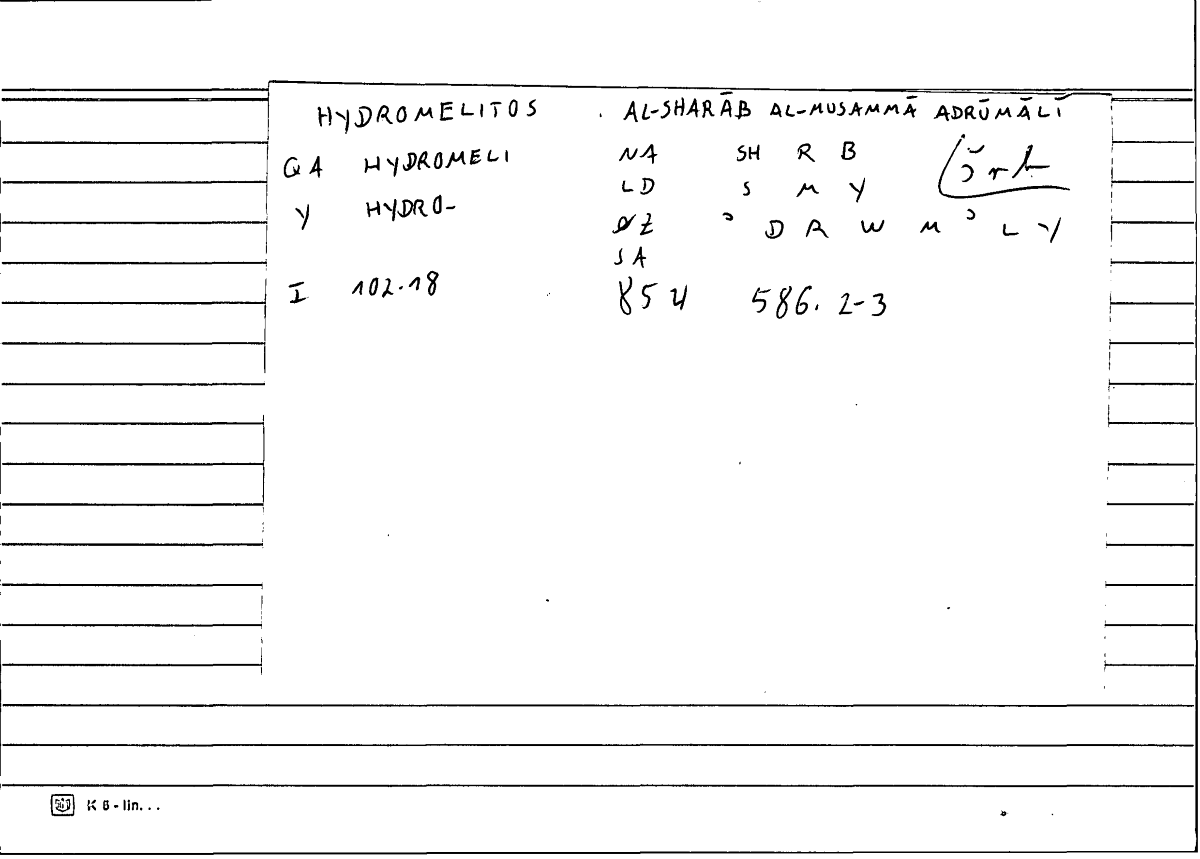 HYDROMELITOS . AL-SHARĀB AL-MUSAMMĀ ADRŪMĀLĪ
QA HYDROMELI NA SH R B
Y HYDRO- LD S M Y
ØZ ʾ D R W M ʾ L Y
SA
I 102.18 854 586. 2-3
K 6 - lin...